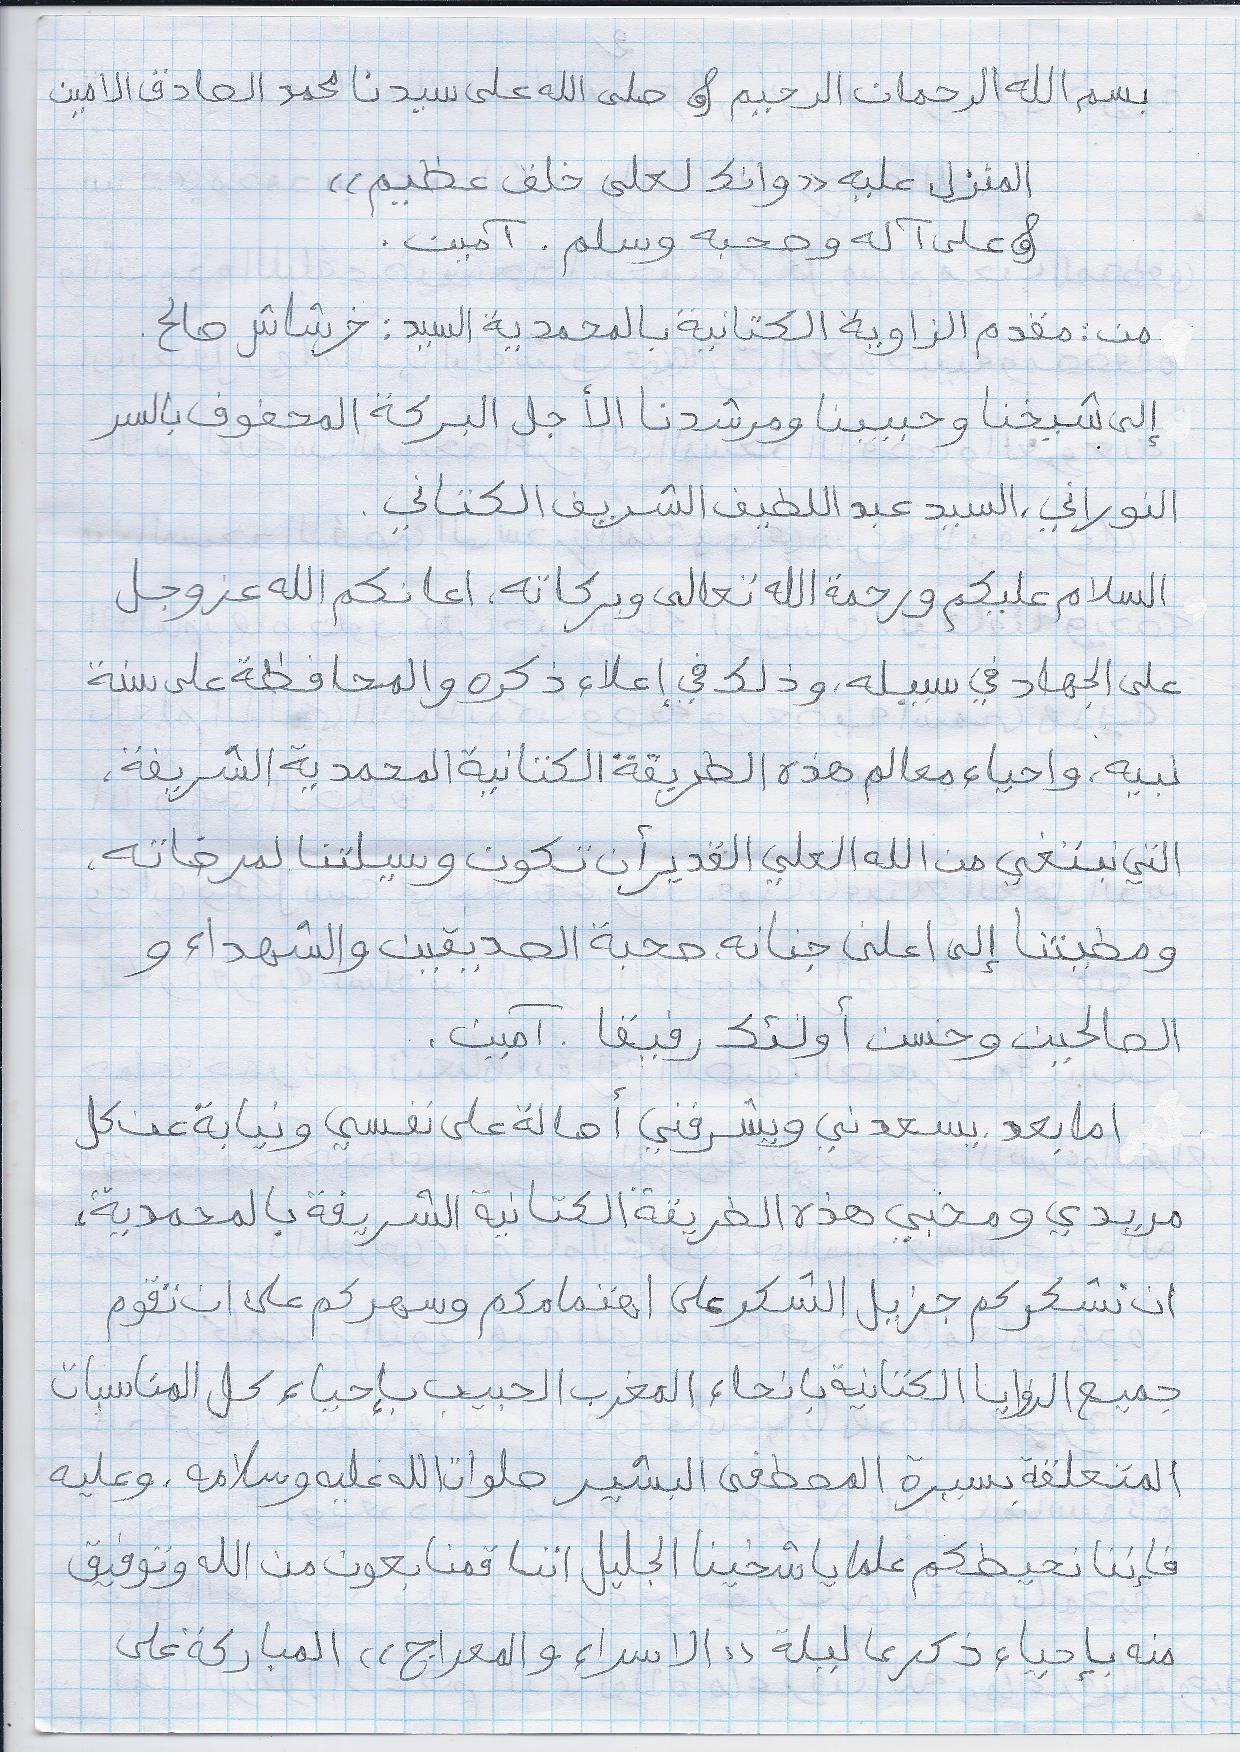 بسم الله الرحمان الرحيم و صلى الله على سيدنا محمد الصادق الامين
المنزل عليه «وانك لعلى خلق عظيم»
و على آله و صحبه وسلم . آمين .
من : مقدم الزاوية الكتانية بالمحمدية السيد : خرشاش صالح .
إلى شيخنا و حبيبنا ومرشدنا الأجل البركة المحفوف بالسر
النوراني ، السيد عبد اللطيف الشريف الكتاني .
السلام عليكم ورحمة الله تعالى وبركاته ، اعانكم الله عز وجل
على الجهاد في سبيله ، وذلك في إعلاء ذكره والمحافظة على سنة
نبيه ، واحياء معالم هذه الطريقة الكتانية المحمدية الشريفة ،
التي نبتغي من الله العلي القدير أن تكون وسيلتنا لمرضاته ،
ومطيتنا إلى اعلى جنانه صحبة الصديقين والشهداء و
الصالحين وحسن أولئك رفيقا . آمين .
اما بعد ، يسعدني ويشرفني أصالة على نفسي ونيابة عن كل
مريدي ومحبي هذه الطريقة الكتانية الشريفة بالمحمدية ،
ان نشكركم جزيل الشكر على اهتمامكم وسهركم على ان تقوم
جميع الزوايا الكتانية بانحاء المغرب الحبيب بإحياء كل المناسبات
المتعلقة بسيرة المصطفى البشير صلوات الله عليه وسلامه ، وعليه
فإننا نحيطكم علما يا شخينا الجليل اننا قمنا بعون من الله وتوفيق
منه بإحياء ذكرى ليلة «الاسراء والمعراج» المباركة على